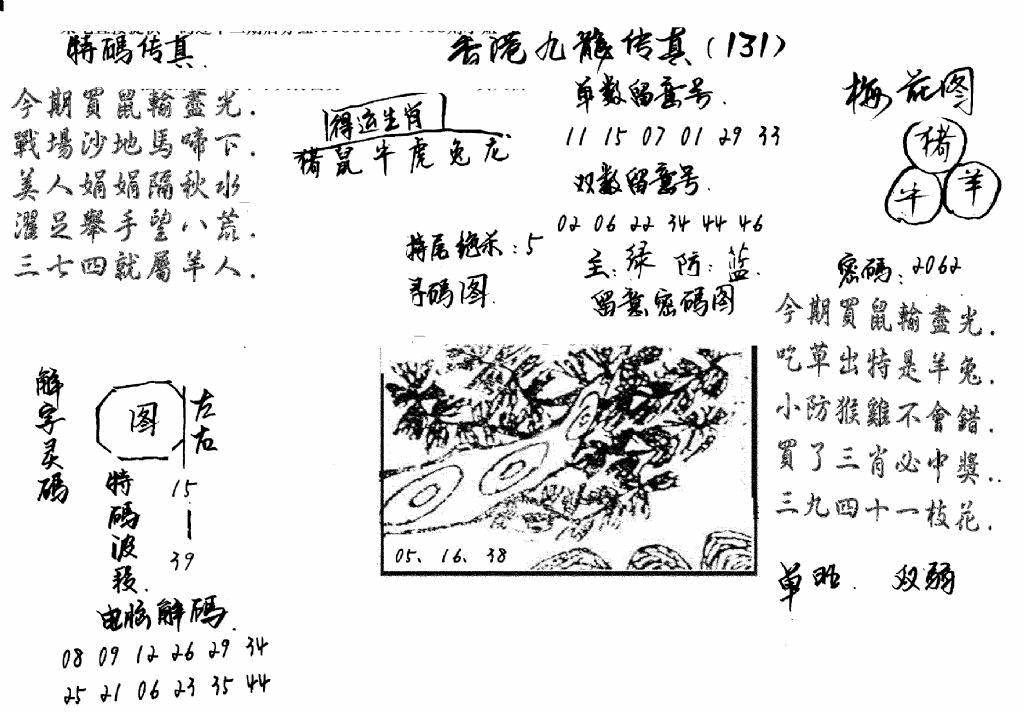 特碼传真
香港九龍传真(131)
今期買鼠輸盡光.
戰場沙地馬啼下.
美人娟娟隔秋水
濯足舉手望八荒.
三七四就屬羊人.
得运生肖
猪鼠牛虎兔龙
特尾绝杀:5
寻碼图.
单数留意号.
11 15 07 01 29 33
双数留意号.
02 06 22 34 44 46
主:绿 防:蓝.
留意密码图
梅花图
猪
牛
羊
密碼:2062
今期買鼠輸盡光.
吃草出特是羊兔.
小防猴雞不會錯.
買了三肖必中獎..
三九四十一枝花.
单旺 双弱
05、16、38
解字灵碼
图
左右
特碼波段.
15
39
电脑解碼.
08 09 12 26 29 34
25 21 06 23 35 44